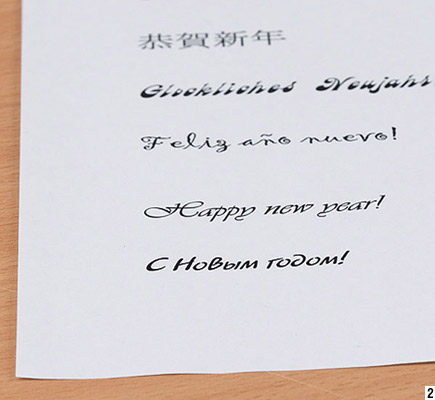 恭賀新年
Glückliches Neujahr
Feliz año nuevo!
Happy new year!
С Новым годом!
2